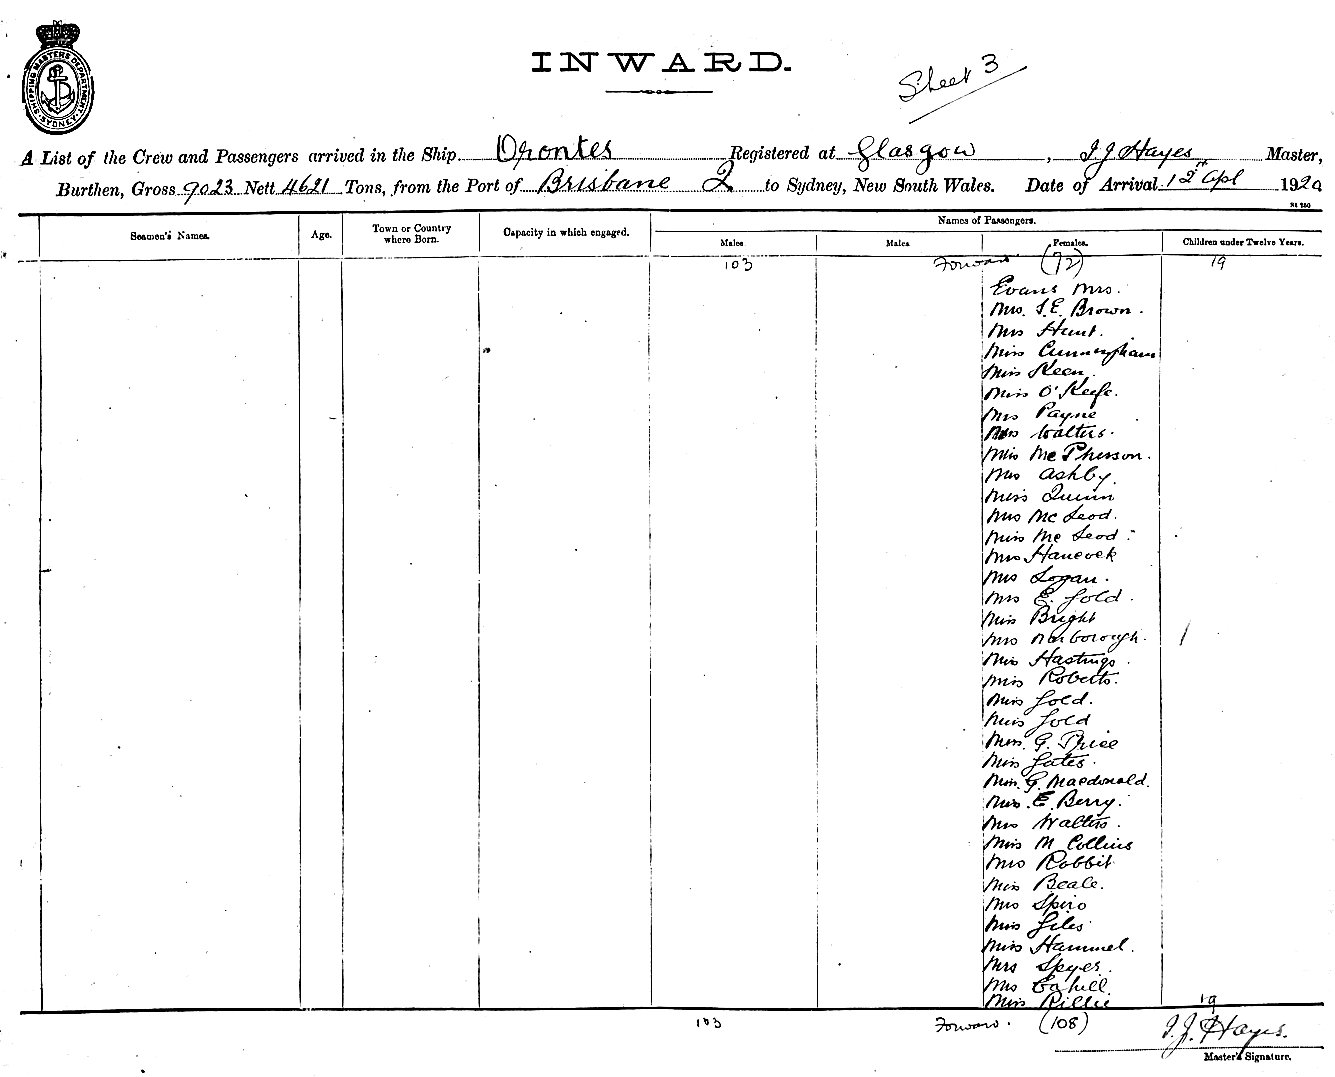 SHIPPING MASTERS DEPARTMENT SYDNEY
INWARD.
Sheet 3
A List of the Crew and Passengers arrived in the Ship Orontes Registered at Glasgow, J.J Hayes Master,
Burthen, Gross 9023 Nett 4621 Tons, from the Port of Brisbane Q to Sydney, New South Wales. Date of Arrival 12th Apl 1920
Names of Passengers.
Seamen's Names. Age. Town or Country where Born. Capacity in which engaged. Males Males Females. Children under Twelve Years.
103 Forward (72) 19
Evans Mrs.
Mrs. S.E. Brown.
Mrs Hunt.
Miss Cunningham
Miss Keen.
Miss O'Keefe.
Mrs Payne
Mrs Walters.
Miss McPherson.
Mrs Ashby.
Miss Quinn
Mrs McLeod.
Miss McLeod.
Mrs Hancock
Mrs Logan.
Mrs E. Gold.
Miss Bright
Mrs Narborough. 1
Miss Hastings.
Miss Roberts.
Miss Gold.
Miss Gold
Miss. G. Price
Miss Gates.
Miss. G. Macdonald.
Miss. E. Berry.
Mrs Walters.
Miss M Collins
Mrs Robbit
Miss Beale.
Mrs Spiro
Miss Giles
Miss Hammel.
Mrs Spyer.
Mrs Cahill.
Miss Rillie
19
103 Forward. (108)
J.J. Hayes.
Master's Signature.